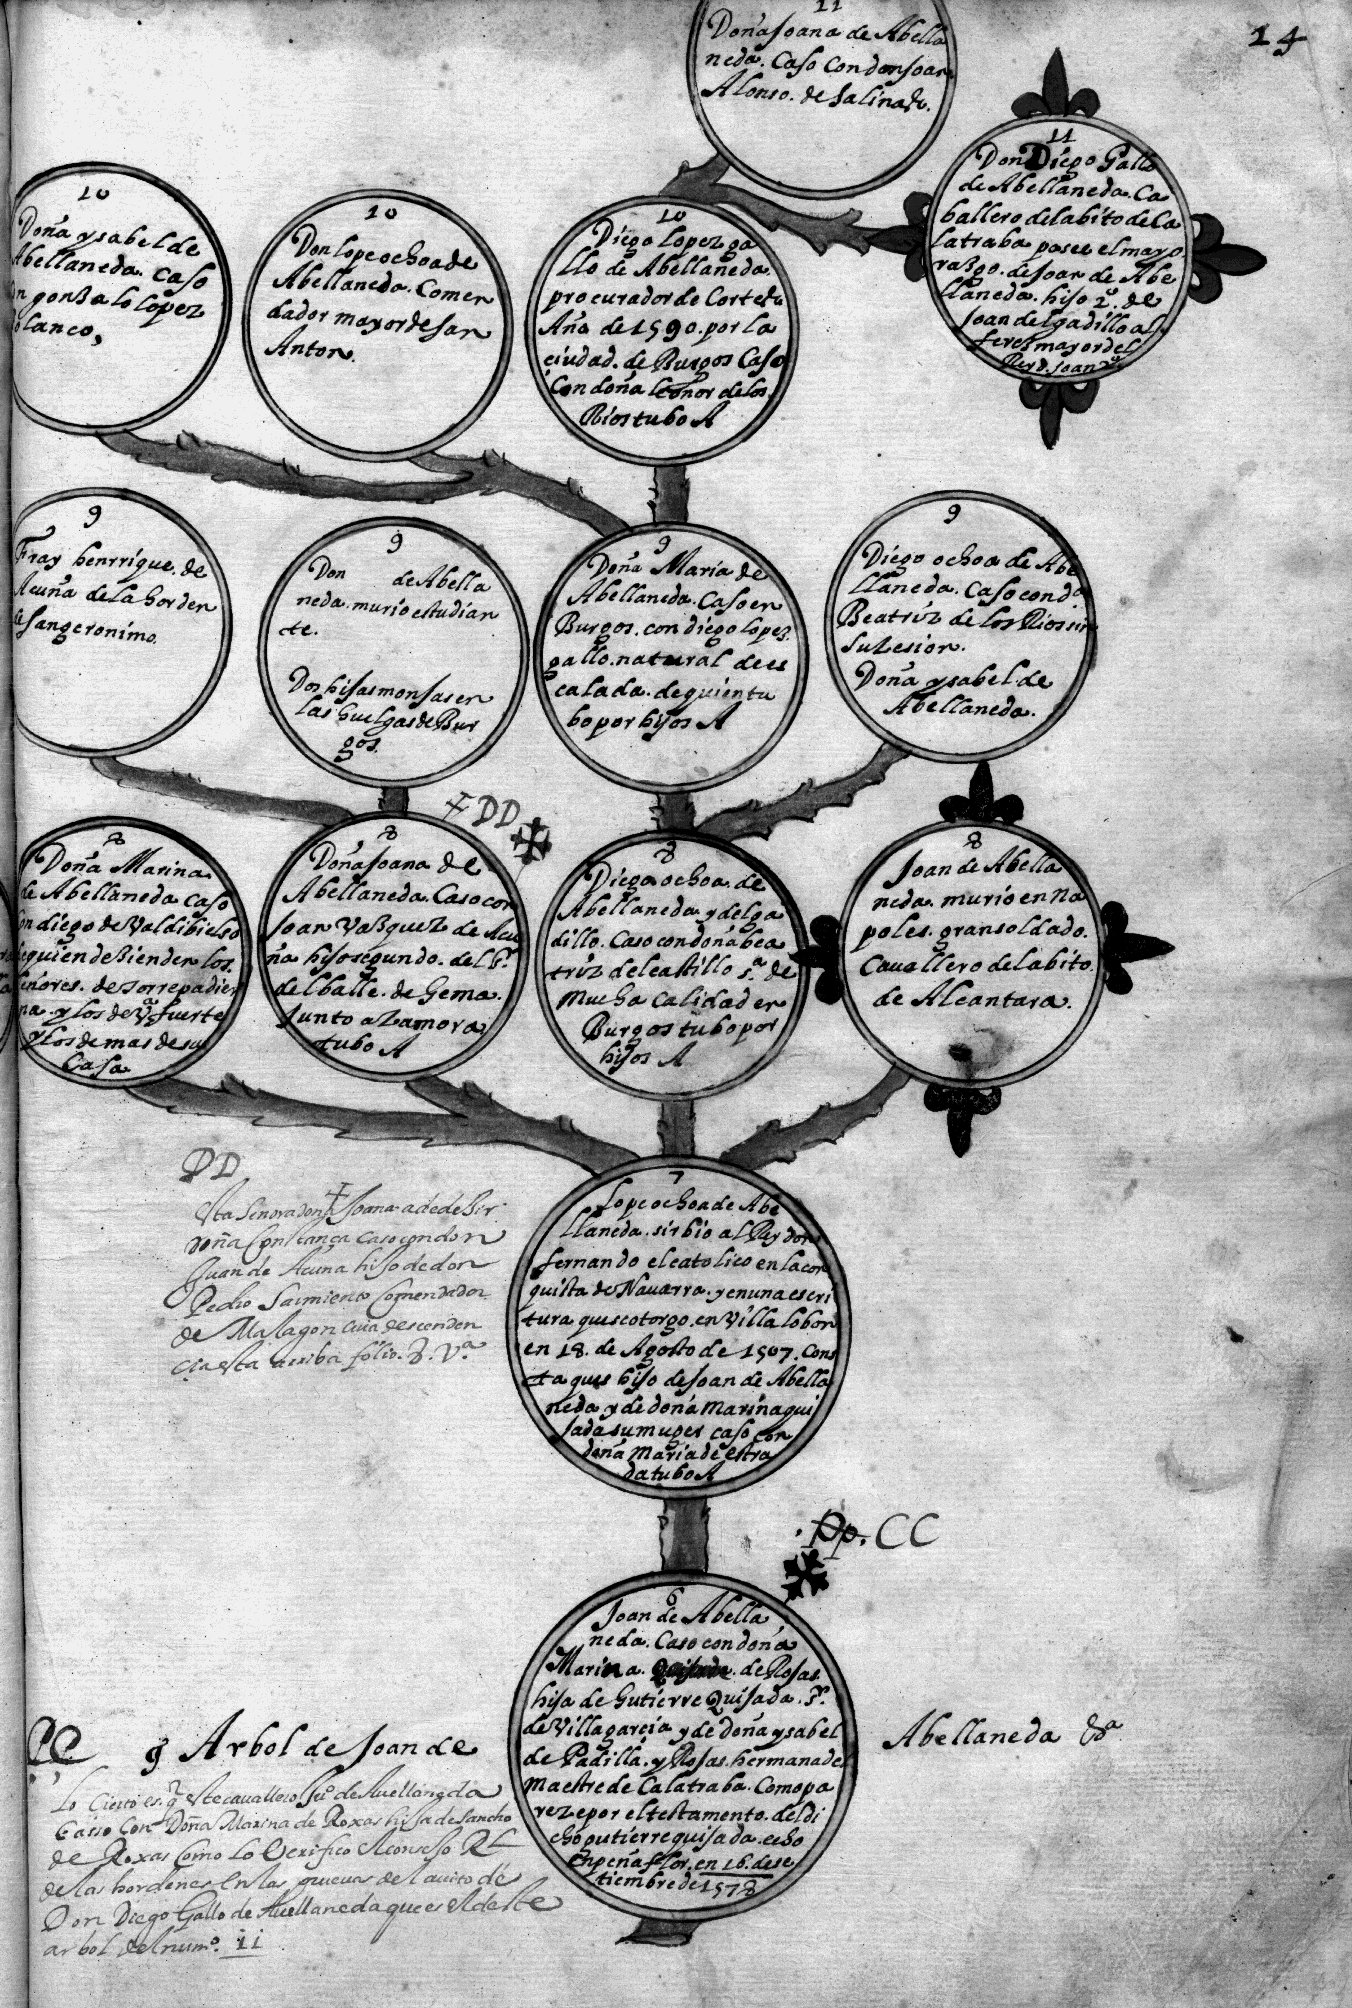 14
11
Doña Joana de Abella
neda. Caso con don Joan
Alonso. de salinas.
11
Don Diego Gallo
de Abellaneda. Ca
ballero del abito de Ca
latraba posee el mayo
razgo. de Joan de Abe
llaneda. hijo 2º. de
Joan delgadillo al
ferez mayor del
Rey d. Joan 2º.
10
Doña ysabel de
Abellaneda. caso
gonzalo lopez
polanco,
10
Don lope ochoa de
Abellaneda. Comen
dador mayor de san
Anton.
10
Diego lopez ga
llo de Abellaneda.
procurador de Cortes
Año de 1590. por la
ciudad. de Burgos Caso
Con doña leonor de los.
Rios tubo A
9
Fray henrrique. de
Acuña de la horden
de sangeronimo.
9
Don de Abella
neda. murio estudian
te.
Dos hijas monjas en
las huelgas de Bur
gos.
9
Doña Maria de
Abellaneda. Caso en
Burgos. con diego lopez.
gallo. natural de es
calada. de quien tu
bo por hijos A
9
Diego ochoa de Abe
llaneda. Caso con dª
Beatriz de los Rios sin
suzesion.
Doña ysabel de
Abellaneda.
DD
8
Doña Marina
de Abellaneda caso
con diego de Valdibielso
de quien dezienden los.
señores. de torrepadier
na. y los de Vª fuerte
y los demas de su
Casa
8
Doña Joana de
Abellaneda. Caso con
Joan Vazquez de Acu
ña hijo segundo. del sr.
del balle. de Gema.
Junto a Zamora
tubo A
8
Diego ochoa. de
Abellaneda y delga
dillo. Caso con doña bea
triz del castillo sª. de
mucha calidad en
Burgos tubo por
hijos A
8
Joan de Abella
neda. murio en Na
poles. gran soldado.
Cauallero del abito.
de Alcantara.
DD
esta senora doña Joana a de dezir
doña Constança caso con don
Juan de Acuña hijo de don
Pedro Sarmiento Comendador
de Malagon cuia descenden
cia esta arriba folio. 3. Vª.
7
Lope ochoa de Abe
llaneda. sirbio al Rey don
fernando el catolico en la con
quista de Nauarra. y en una escri
tura que se otorgo. en Villalobon
en 18. de Agosto de 1507. Cons
ta que es hijo de Joan de Abella
neda y de doña marina qui
jada su muger caso con
doña maria de estra
da tubo A
Pp. CC
6
Joan de Abella
neda. Caso con doña
Marina. de Rojas.
hija de Gutierre Quijada. sr.
de Villagarcia y de doña ysabel
de Padilla. y Rojas. hermana del
maestre de Calatraba. Como pa
reze por el testamento. del di
cho gutierre quijada. echo
en peñaflor. en 16. de se
tiembre de 1578
CC
9 Arbol de Joan de Abellaneda &ª
Lo Cierto es. q este cauallero Juº de Auellaneda
Casso con Doña Marina de Roxas hija de Sancho
de Roxas Como lo Verifico Aconsejo Rl
de las hordenes en las prueuas del auito de
Don Diego Gallo de Auellaneda que es el deste
arbol del numº. ii